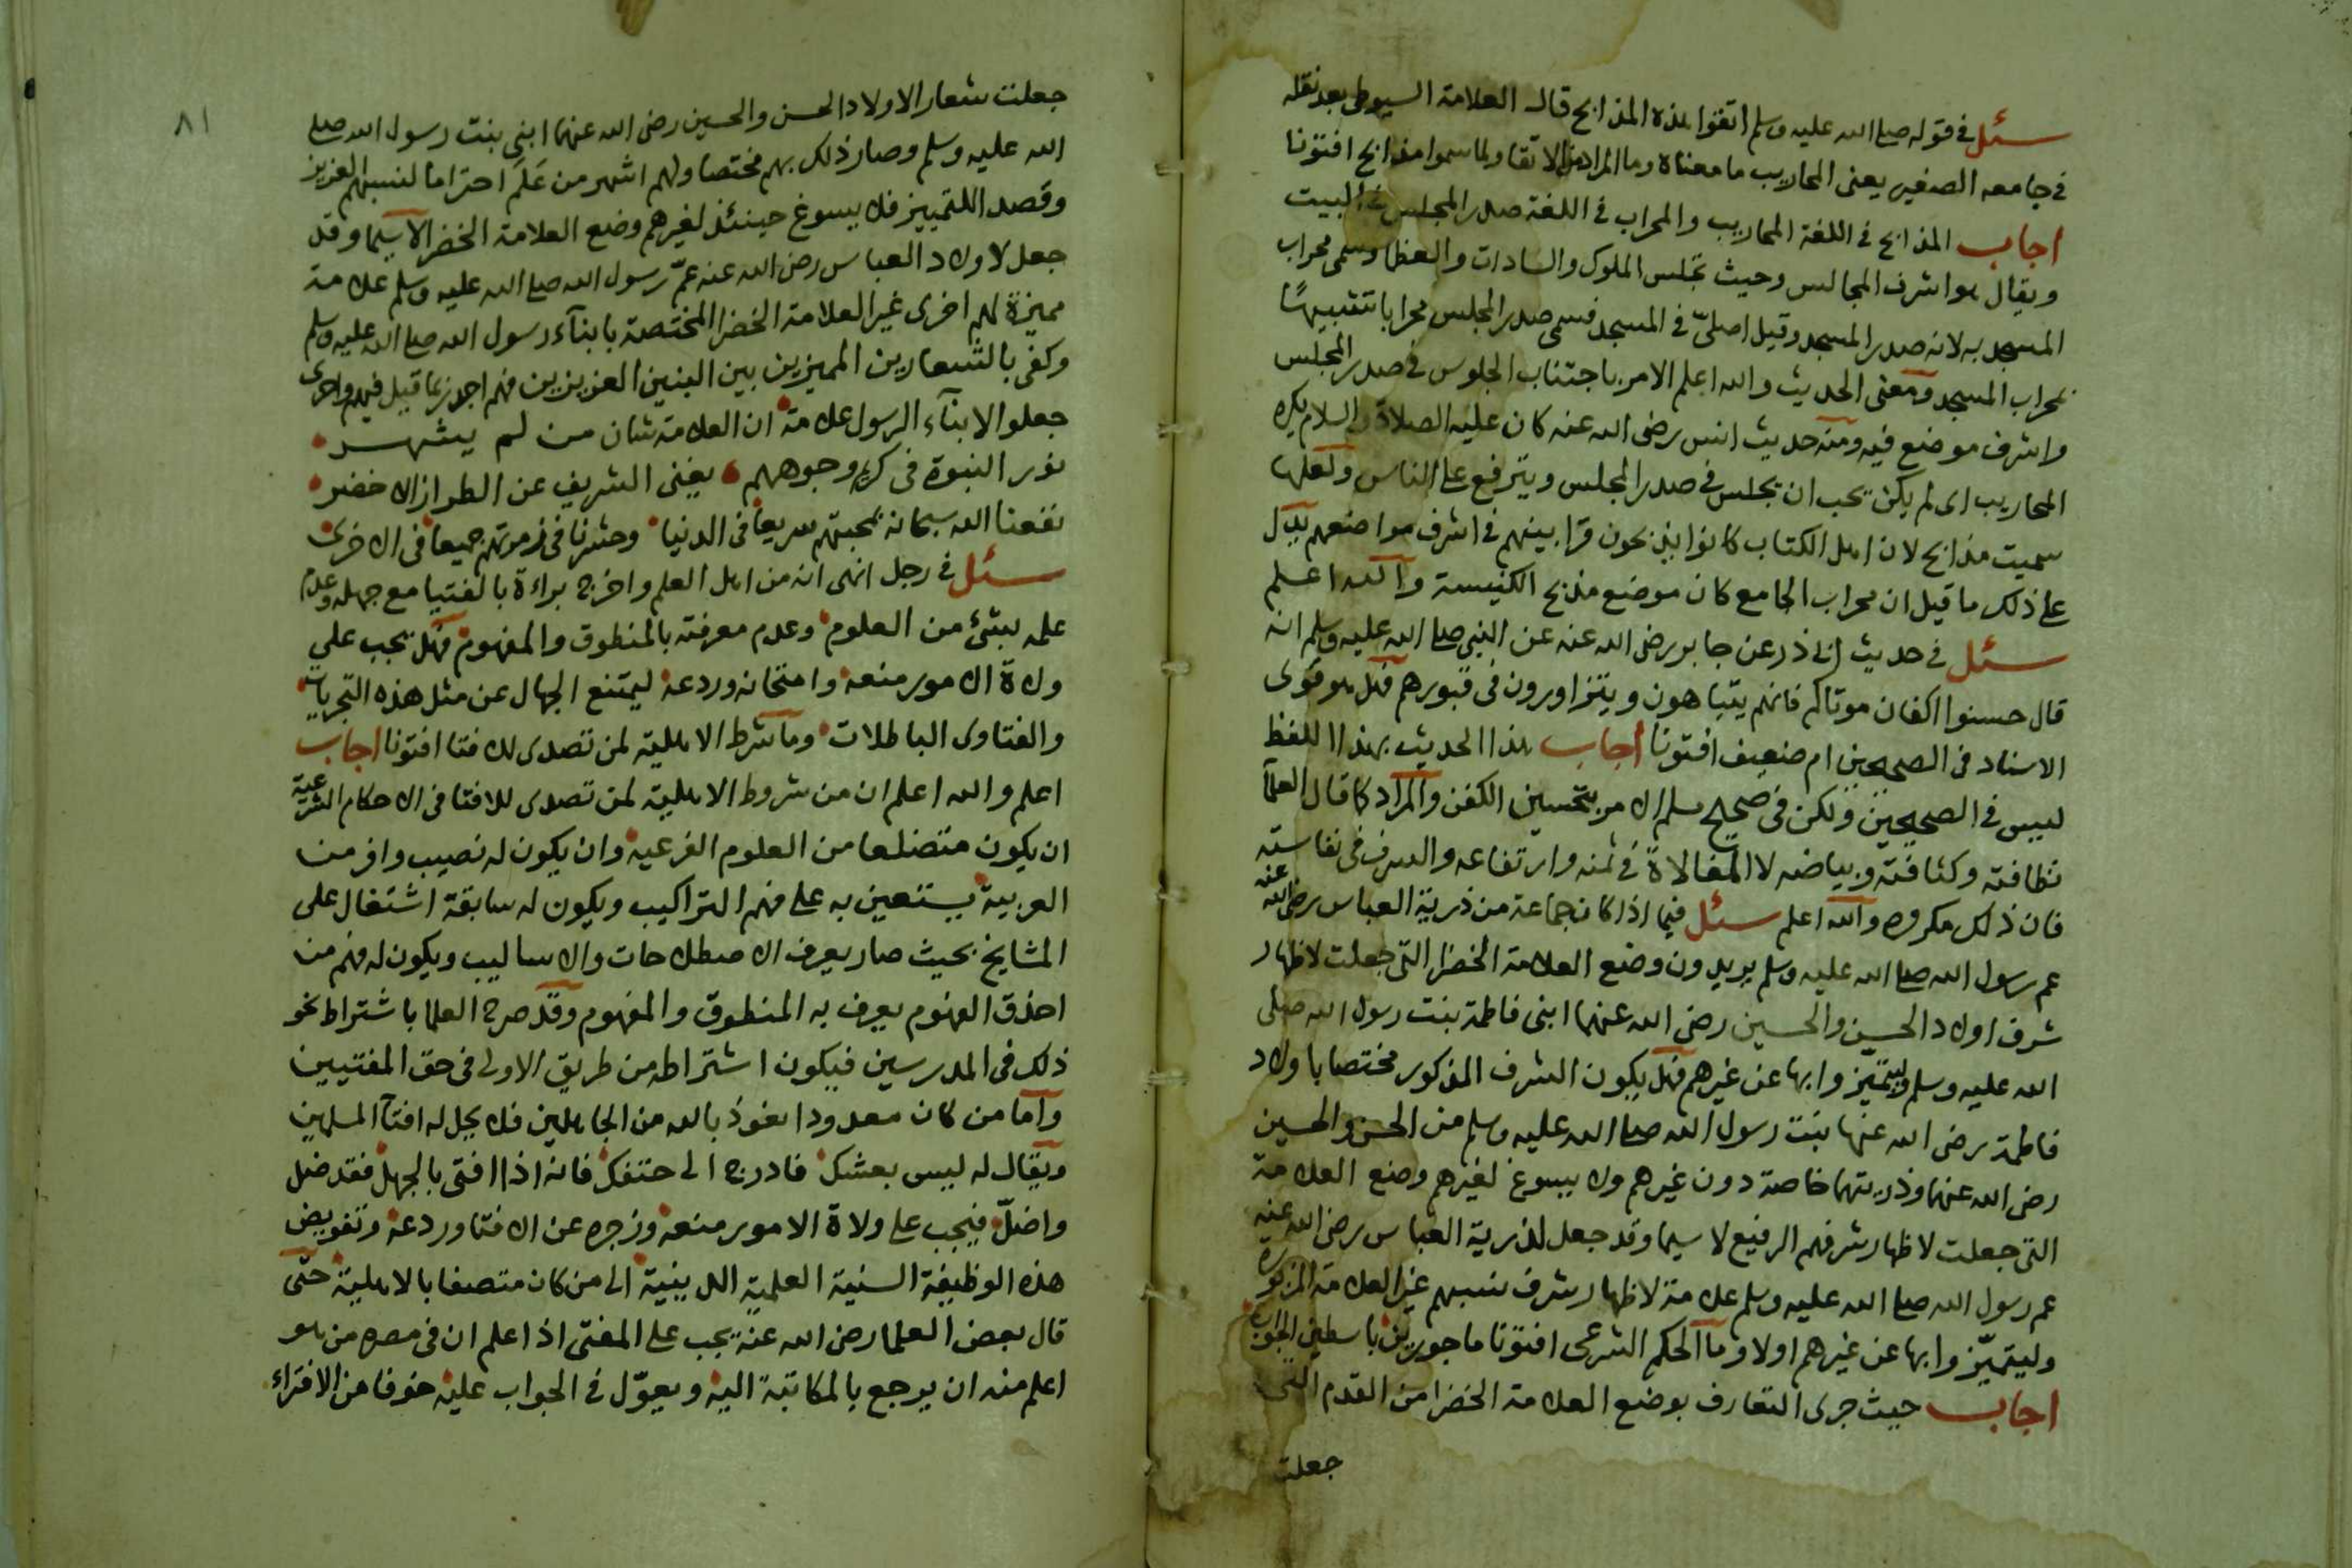 سئل في قوله صلى الله عليه وسلم اتقوا هذه المذابح قال العلامة السيوطي بعد نقله
في جامعه الصغير يعنى المحاريب ما معناه وما المراد من الاتقا ولما سموا مذابح افتونا
اجاب المذابح في اللغة المحاريب والمحراب في اللغة صدر المجلس في البيت
ويقال هو اشرف المجالس وحيث تجلس الملوك والسادات والعظما وسمى محراب
المسجد به لانه صدر المسجد وقيل اصليّ في المسجد فسمى صدر المجلس محرابا تشبيهًا
بمحراب المسجد ومعنى الحديث والله اعلم الامر باجتناب الجلوس في صدر المجلس
واشرف موضع فيه ومنه حديث انس رضى الله عنه كان عليه الصلاة والسلام يكره
المحاريب اى لم يكن يحب ان يجلس في صدر المجلس ويترفع على الناس ولعلها
سميت مذابح لان اهل الكتاب كانوا يذبحون قرابينهم في اشرف مواضعهم يدل
على ذلك ما قيل ان محراب الجامع كان موضع مذبح الكنيسة والله اعلم
سئل في حديث ابى ذر عن جابر رضى الله عنه عن النبى صلى الله عليه وسلم انه
قال حسنوا اكفان موتاكم فانهم يتباهون ويتزاورون فى قبورهم فهل هو قوى
الاسناد فى الصحيحين ام ضعيف افتونا اجاب هذا الحديث بهذا اللفظ
ليس في الصحيحين ولكن فى صحيح مسلم الامر بتحسين الكفن والمراد كما قال العلماء
نظافته وكثافته وبياضه لا المغالاة في ثمنه وارتفاعه والسرف فى نفاسته
فان ذلك مكروه والله اعلم سئل فيما اذا كان جماعة من ذرية العباس رضى الله عنه
عم رسول الله صلى الله عليه وسلم يريدون وضع العلامة الخضرا التى جعلت لاظهار
شرف اولاد الحسن والحسين رضى الله عنهما ابنى فاطمة بنت رسول الله صلى
الله عليه وسلم وليتميّزوا بها عن غيرهم فهل يكون الشرف المذكور مختصا باولاد
فاطمة رضى الله عنها بنت رسول الله صلى الله عليه وسلم من الحسن والحسين
رضى الله عنهما وذريتهما خاصة دون غيرهم ولا يسوغ لغيرهم وضع العلامة
التى جعلت لاظهار شرفهم الرفيع لا سيما وقد جعل لذرية العباس رضى الله عنه
عم رسول الله صلى الله عليه وسلم علامة لاظهار شرف نسبهم غير العلامة المذكوره
وليتميّزوا بها عن غيرهم اولا وما الحكم الشرعى افتونا ماجورين باسطين الجواب
اجاب حيث جرى التعارف بوضع العلامة الخضرا من القدم التى
جعلت
٨١
جعلت شعار الاولاد الحسن والحسين رضى الله عنهما ابنى بنت رسول الله صلى
الله عليه وسلم وصار ذلك بهم مختصا ولهم اشهر من عَلَم احتراما لنسبهم العزيز
وقصد اللتمييز فلا يسوغ حينئذ لغيرهم وضع العلامة الخضرا لا سيما وقد
جعل لاولاد العباس رضى الله عنه عمّ رسول الله صلى الله عليه وسلم علامة
مميزة لهم اخرى غير العلامة الخضرا المختصة بابنآء رسول الله صلى الله عليه وسلم
وكفى بالشعارين المميزين بين البنين العزيزين فهم اجدر بما قيل فيهم واحرى
جعلوا لابنآء الرسول علامة ان العلامة شان من لم يشهر
نور النبوة فى كريم وجوههم يغنى الشريف عن الطراز الاخضر
نفعنا الله سبحانه بمحبتهم سريعا فى الدنيا وحشرنا فى زمرتهم جميعا فى الاخرى
سئل في رجل انهى انه من اهل العلم واخرج براءة بالفتيا مع جهله وعدم
علمه بشئ من العلوم وعدم معرفته بالمنطوق والمفهوم فهل يجب على
ولاة الامور منعه وامتحانه وردعه ليمتنع الجهال عن مثل هذه التجريات
والفتاوى الباطلات وما شرط الاهلية لمن تصدى للافتا افتونا اجاب
اعلم والله اعلم ان من شروط الاهلية لمن تصدى للافتا فى الاحكام الشرعية
ان يكون متضلعا من العلوم الفرعية وان يكون له نصيب وافر من
العربية يستعين به على فهم التراكيب ويكون له سابقة اشتغال على
المشايخ بحيث صار يعرف الاصطلاحات والاساليب ويكون له فهم من
احذق الفهوم يعرف به المنطوق والمفهوم وقد صرح العلما باشتراط نحو
ذلك فى المدرسين فيكون اشتراطه من طريق الاولى فى حق المفتيين
واما من كان معدودا نعوذ بالله من الجاهلين فلا يحل له افتآ المسلمين
ويقال له ليس بعشك فادرج الى حتفك فانه اذا افتى بالجهل فقد ضل
واضلّ فيجب على ولاة الامور منعه وزجره عن الافتا وردعه وتفويض
هذه الوظيفة السنية العلمية الدينية الى من كان متصفا بالاهلية حتى
قال بعض العلما رضى الله عنه يجب على المفتى اذا علم ان فى مصره من هو
اعلم منه ان يرجع بالمكاتبة اليه ويعوّل فى الجواب عليه خوفا من الافتراء